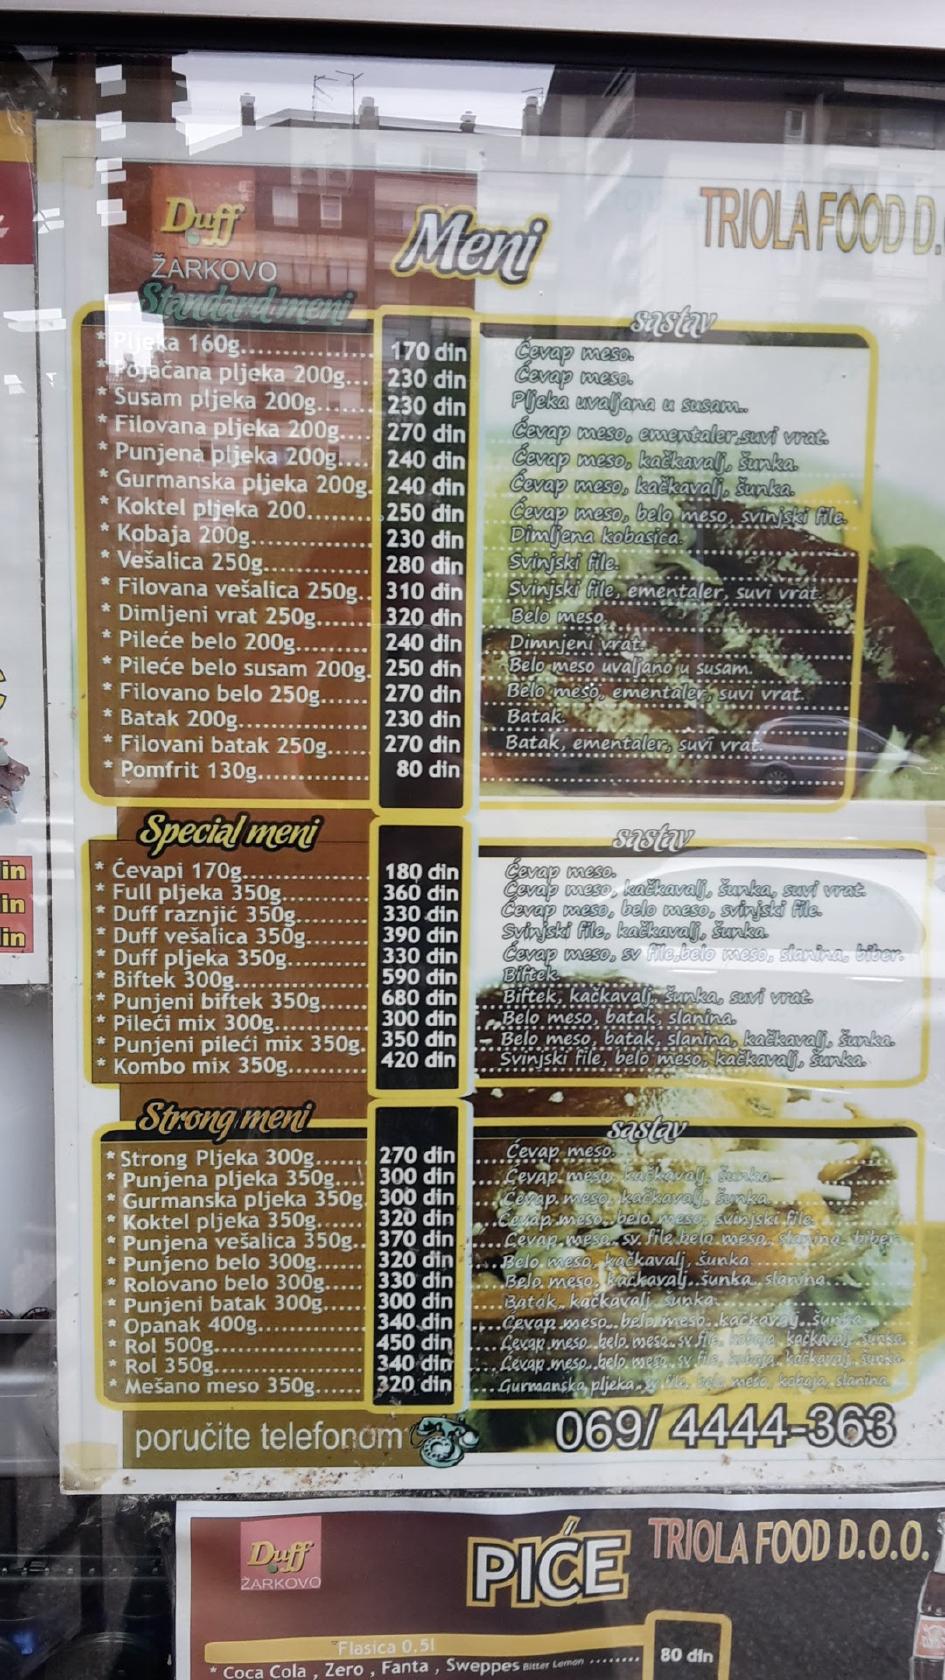 Duff
ŽARKOVO
Meni
TRIOLA FOOD D.
Standard meni
sastav
* Pljeka 160g.................... 170 din Ćevap meso.
* Pojačana pljeka 200g... 230 din Ćevap meso.
* Susam pljeka 200g....... 230 din Pljeka uvaljana u susam..
* Filovana pljeka 200g.... 270 din Ćevap meso, ementaler,suvi vrat.
* Punjena pljeka 200g.... 240 din Ćevap meso, kačkavalj, šunka.
* Gurmanska pljeka 200g. 240 din Ćevap meso, kačkavalj, šunka.
* Koktel pljeka 200........ 250 din Ćevap meso, belo meso, svinjski file.
* Kobaja 200g............... 230 din Dimljena kobasica.
* Vešalica 250g............. 280 din Svinjski file.
* Filovana vešalica 250g.. 310 din Svinjski file, ementaler, suvi vrat.
* Dimljeni vrat 250g....... 320 din Belo meso.
* Pileće belo 200g......... 240 din Dimnjeni vrat.
* Pileće belo susam 200g. 250 din Belo meso uvaljano u susam.
* Filovano belo 250g...... 270 din Belo meso, ementaler, suvi vrat.
* Batak 200g................ 230 din Batak.
* Filovani batak 250g..... 270 din Batak, ementaler, suvi vrat.
* Pomfrit 130g.............. 80 din
Special meni
sastav
* Ćevapi 170g................ 180 din Ćevap meso.
* Full pljeka 350g........... 360 din Ćevap meso, kačkavalj, šunka, suvi vrat.
* Duff raznjić 350g......... 330 din Ćevap meso, belo meso, svinjski file.
* Duff vešalica 350g....... 390 din Svinjski file, kačkavalj, šunka.
* Duff pljeka 350g.......... 330 din Ćevap meso, sv file,belo meso, slanina, biber.
* Biftek 300g................. 590 din Biftek.
* Punjeni biftek 350g..... 680 din Biftek, kačkavalj, šunka, suvi vrat.
* Pileći mix 300g............ 300 din Belo meso, batak, slanina.
* Punjeni pileći mix 350g. 350 din Belo meso, batak, slanina, kačkavalj, šunka.
* Kombo mix 350g.......... 420 din Svinjski file, belo meso, kačkavalj, šunka.
Strong meni
sastav
* Strong Pljeka 300g....... 270 din Ćevap meso.
* Punjena pljeka 350g..... 300 din Ćevap meso, kačkavalj, šunka
* Gurmanska pljeka 350g. 300 din Ćevap meso, kačkavalj, šunka
* Koktel pljeka 350g....... 320 din Ćevap meso, belo meso, svinjski file
* Punjena vešalica 350g.. 370 din Ćevap meso, sv. file, belo meso, slanina, biber
* Punjeno belo 300g....... 320 din Belo meso, kačkavalj, šunka
* Rolovano belo 300g...... 330 din Belo meso, kačkavalj, šunka, slanina
* Punjeni batak 300g...... 300 din Batak, kačkavalj, šunka
* Opanak 400g............... 340 din Ćevap meso, belo meso, kačkavalj, šunka
* Rol 500g..................... 450 din Ćevap meso, belo meso, sv file, kobaja, kačkavalj, šunka
* Rol 350g..................... 340 din Ćevap meso, belo meso, sv file, kobaja, kačkavalj, šunka
* Mešano meso 350g....... 320 din Gurmanska pljeka, sv file, belo meso, kobaja, slanina
poručite telefonom 069/ 4444-363
in
in
din
Duff
ŽARKOVO
PIĆE
TRIOLA FOOD D.O.O.
Flasica 0,5l
* Coca Cola , Zero , Fanta , Sweppes Bitter Lemon ........ 80 din